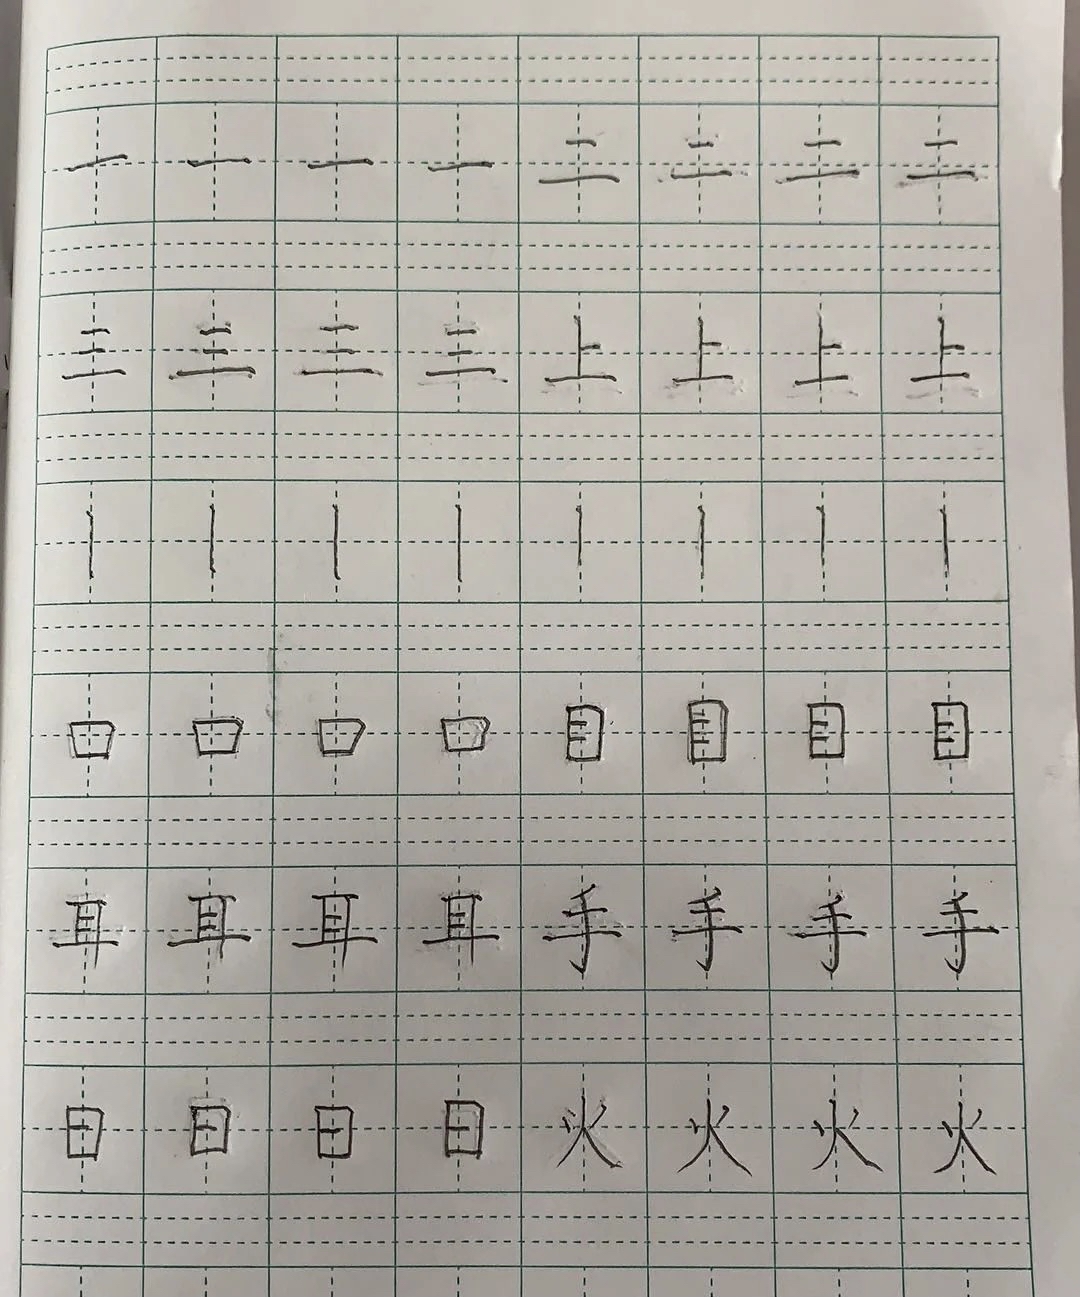 一 一 一 一 二 二 二 二
三 三 三 三 上 上 上 上
丨 丨 丨 丨 丨 丨 丨 丨
口 口 口 口 目 目 目 目
耳 耳 耳 耳 手 手 手 手
日 日 日 日 火 火 火 火